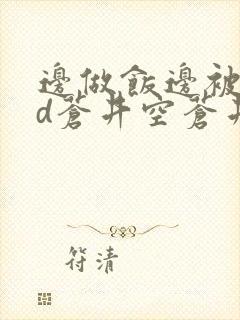 邊做飯邊被
d蒼井空蒼井
符清